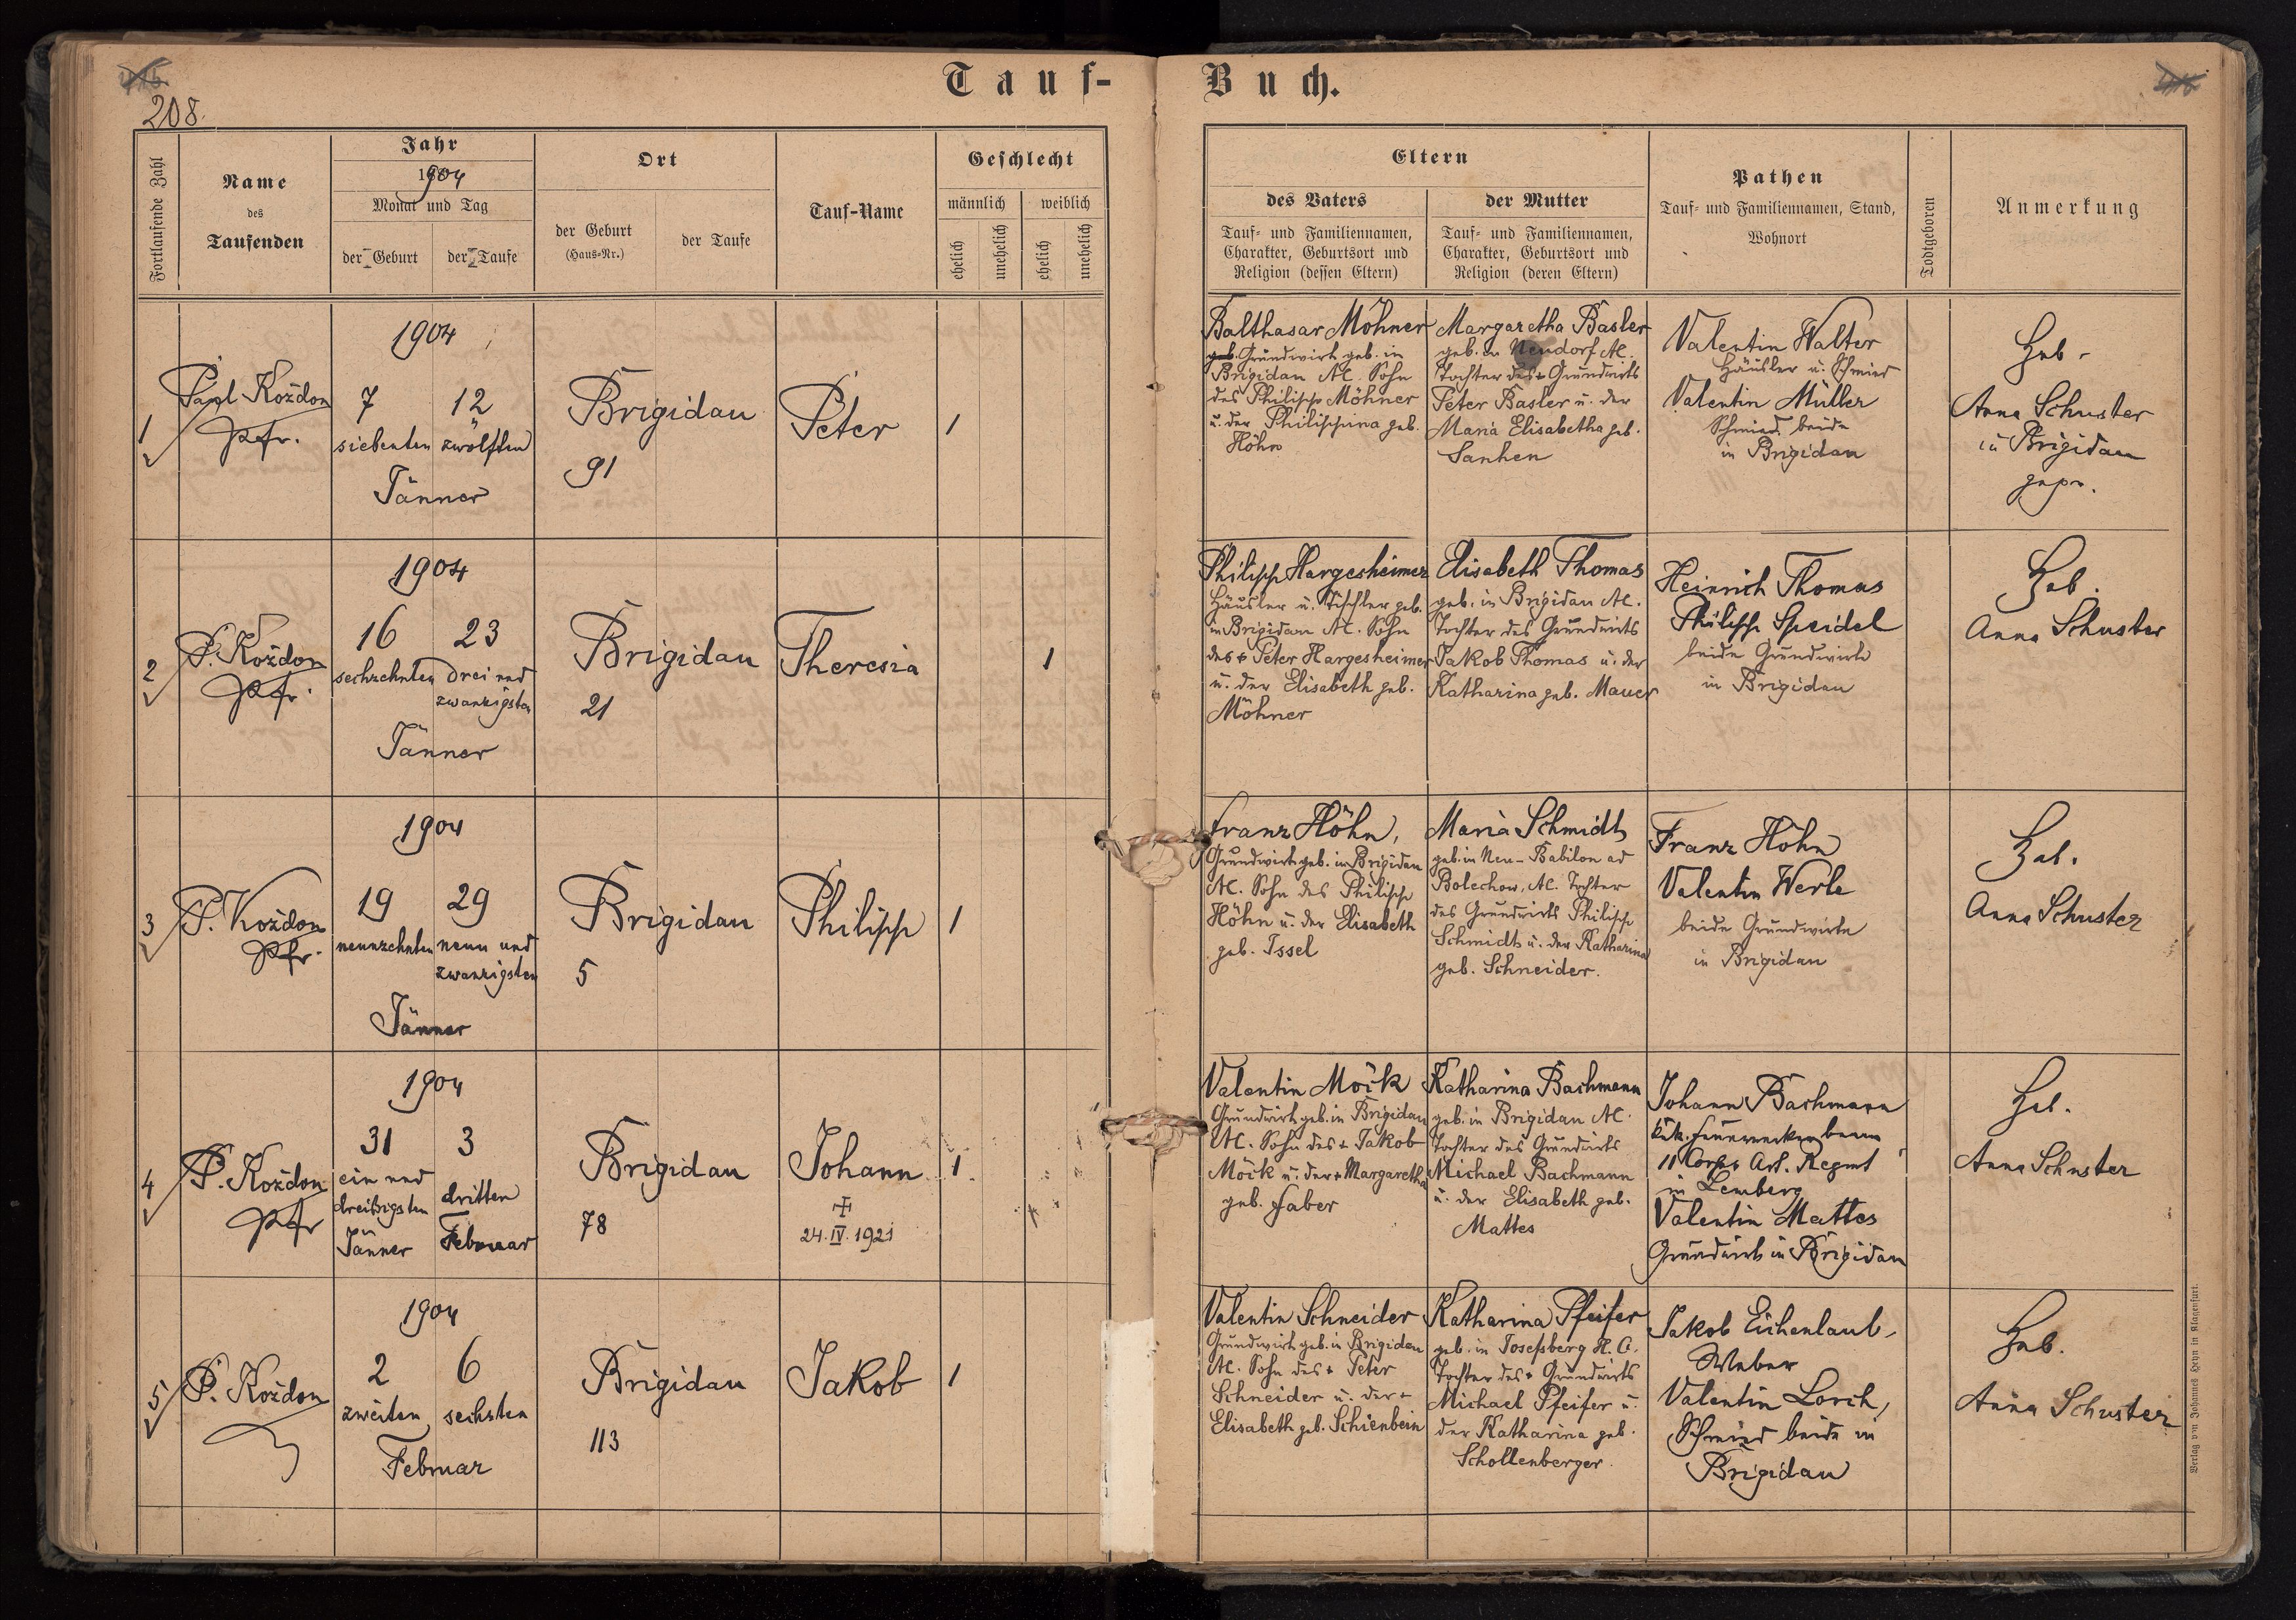 Tauf-Buch.
208.
Fortlaufende Zahl
Name
des
Taufenden
Jahr
1904
Monat und Tag
der Geburt
der Taufe
Ort
der Geburt
(Haus-Nr.)
der Taufe
Tauf-Name
Geschlecht
männlich
weiblich
ehelich
unehelich
ehelich
unehelich
Eltern
des Vaters
Tauf- und Familiennamen,
Charakter, Geburtsort und
Religion (dessen Eltern)
der Mutter
Tauf- und Familiennamen,
Charakter, Geburtsort und
Religion (deren Eltern)
Pathen
Tauf- und Familiennamen, Stand,
Wohnort
Todtgeboren
Anmerkung
1
Paul Kożdon
Pfr.
1904
7
siebenten
12
zwölften
Jänner
Brigidau
91
Peter
1
Balthasar Möhner
geb. Grundwirt geb. in
Brigidau AC. Sohn
des Philipp Möhner
u. der Philippina geb.
Höhn
Margaretha Basler
geb. in Neudorf AC.
Tochter des + Grundwirts
Peter Basler u. der
Maria Elisabetha geb.
Sanhen
Valentin Walter
Häusler u. Schmied
Valentin Müller
Schmied, beide
in Brigidau
Heb.
Anna Schuster
in Brigidau
gepr.
2
P. Kożdon
Pfr.
1904
16
sechzehnten
23
drei und
zwanzigsten
Jänner
Brigidau
21
Theresia
1
Philipp Hargesheimer
Häusler u. Tischler geb.
in Brigidau AC. Sohn
des + Peter Hargesheimer
u. der Elisabeth geb.
Möhner
Elisabeth Thomas
geb. in Brigidau AC.
Tochter des Grundwirts
Jakob Thomas u. der
Katharina geb. Mauer
Heinrich Thomas
Philipp Speidel
beide Grundwirte
in Brigidau
Heb.
Anna Schuster
3
P. Kożdon
Pfr.
1904
19
neunzehnten
29
neun und
zwanzigsten
Jänner
Brigidau
5
Philipp
1
Franz Höhn,
Grundwirt geb. in Brigidau
AC. Sohn des Philipp
Höhn u. der Elisabeth
geb. Issel
Maria Schmidt
geb. in Neu-Babilon ad
Bolechow, AC. Tochter
des Grundwirts Philipp
Schmidt u. der Katharina
geb. Schneider.
Franz Höhn
Valentin Werle
beide Grundwirte
in Brigidau
Heb.
Anna Schuster
4
P. Kożdon
Pfr
1904
31
ein und
dreißigsten
Jänner
3
dritten
Februar
Brigidau
78
Johann
+
24. IV. 1921
1
Valentin Möck
Grundwirt geb. in Brigidau
AC. Sohn des + Jakob
Möck u. der + Margaretha
geb. Faber
Katharina Bachmann
geb. in Brigidau AC.
Tochter des Grundwirts
Michael Bachmann
u. der Elisabeth geb.
Mattes
Johann Bachmann
k.u.k. Feuerwerker beim
11 Corps Art. Regmt
in Lemberg
Valentin Mattes
Grundwirt in Brigidau
Heb.
Anna Schuster
5
P. Kożdon
1904
2
zweiten
6
sechsten
Februar
Brigidau
113
Jakob
1
Valentin Schneider
Grundwirt geb. in Brigidau
AC. Sohn des + Peter
Schneider u. der +
Elisabeth geb. Schienbein
Katharina Pfeifer
geb. in Josefsberg H. C.
Tochter des + Grundwirts
Michael Pfeifer u.
der Katharina geb.
Schollenberger.
Jakob Eichenlaub,
Weber
Valentin Lorch,
Schmied beide in
Brigidau
Heb.
Anna Schuster
Verlag von Johannes Heyn in Klagenfurt.